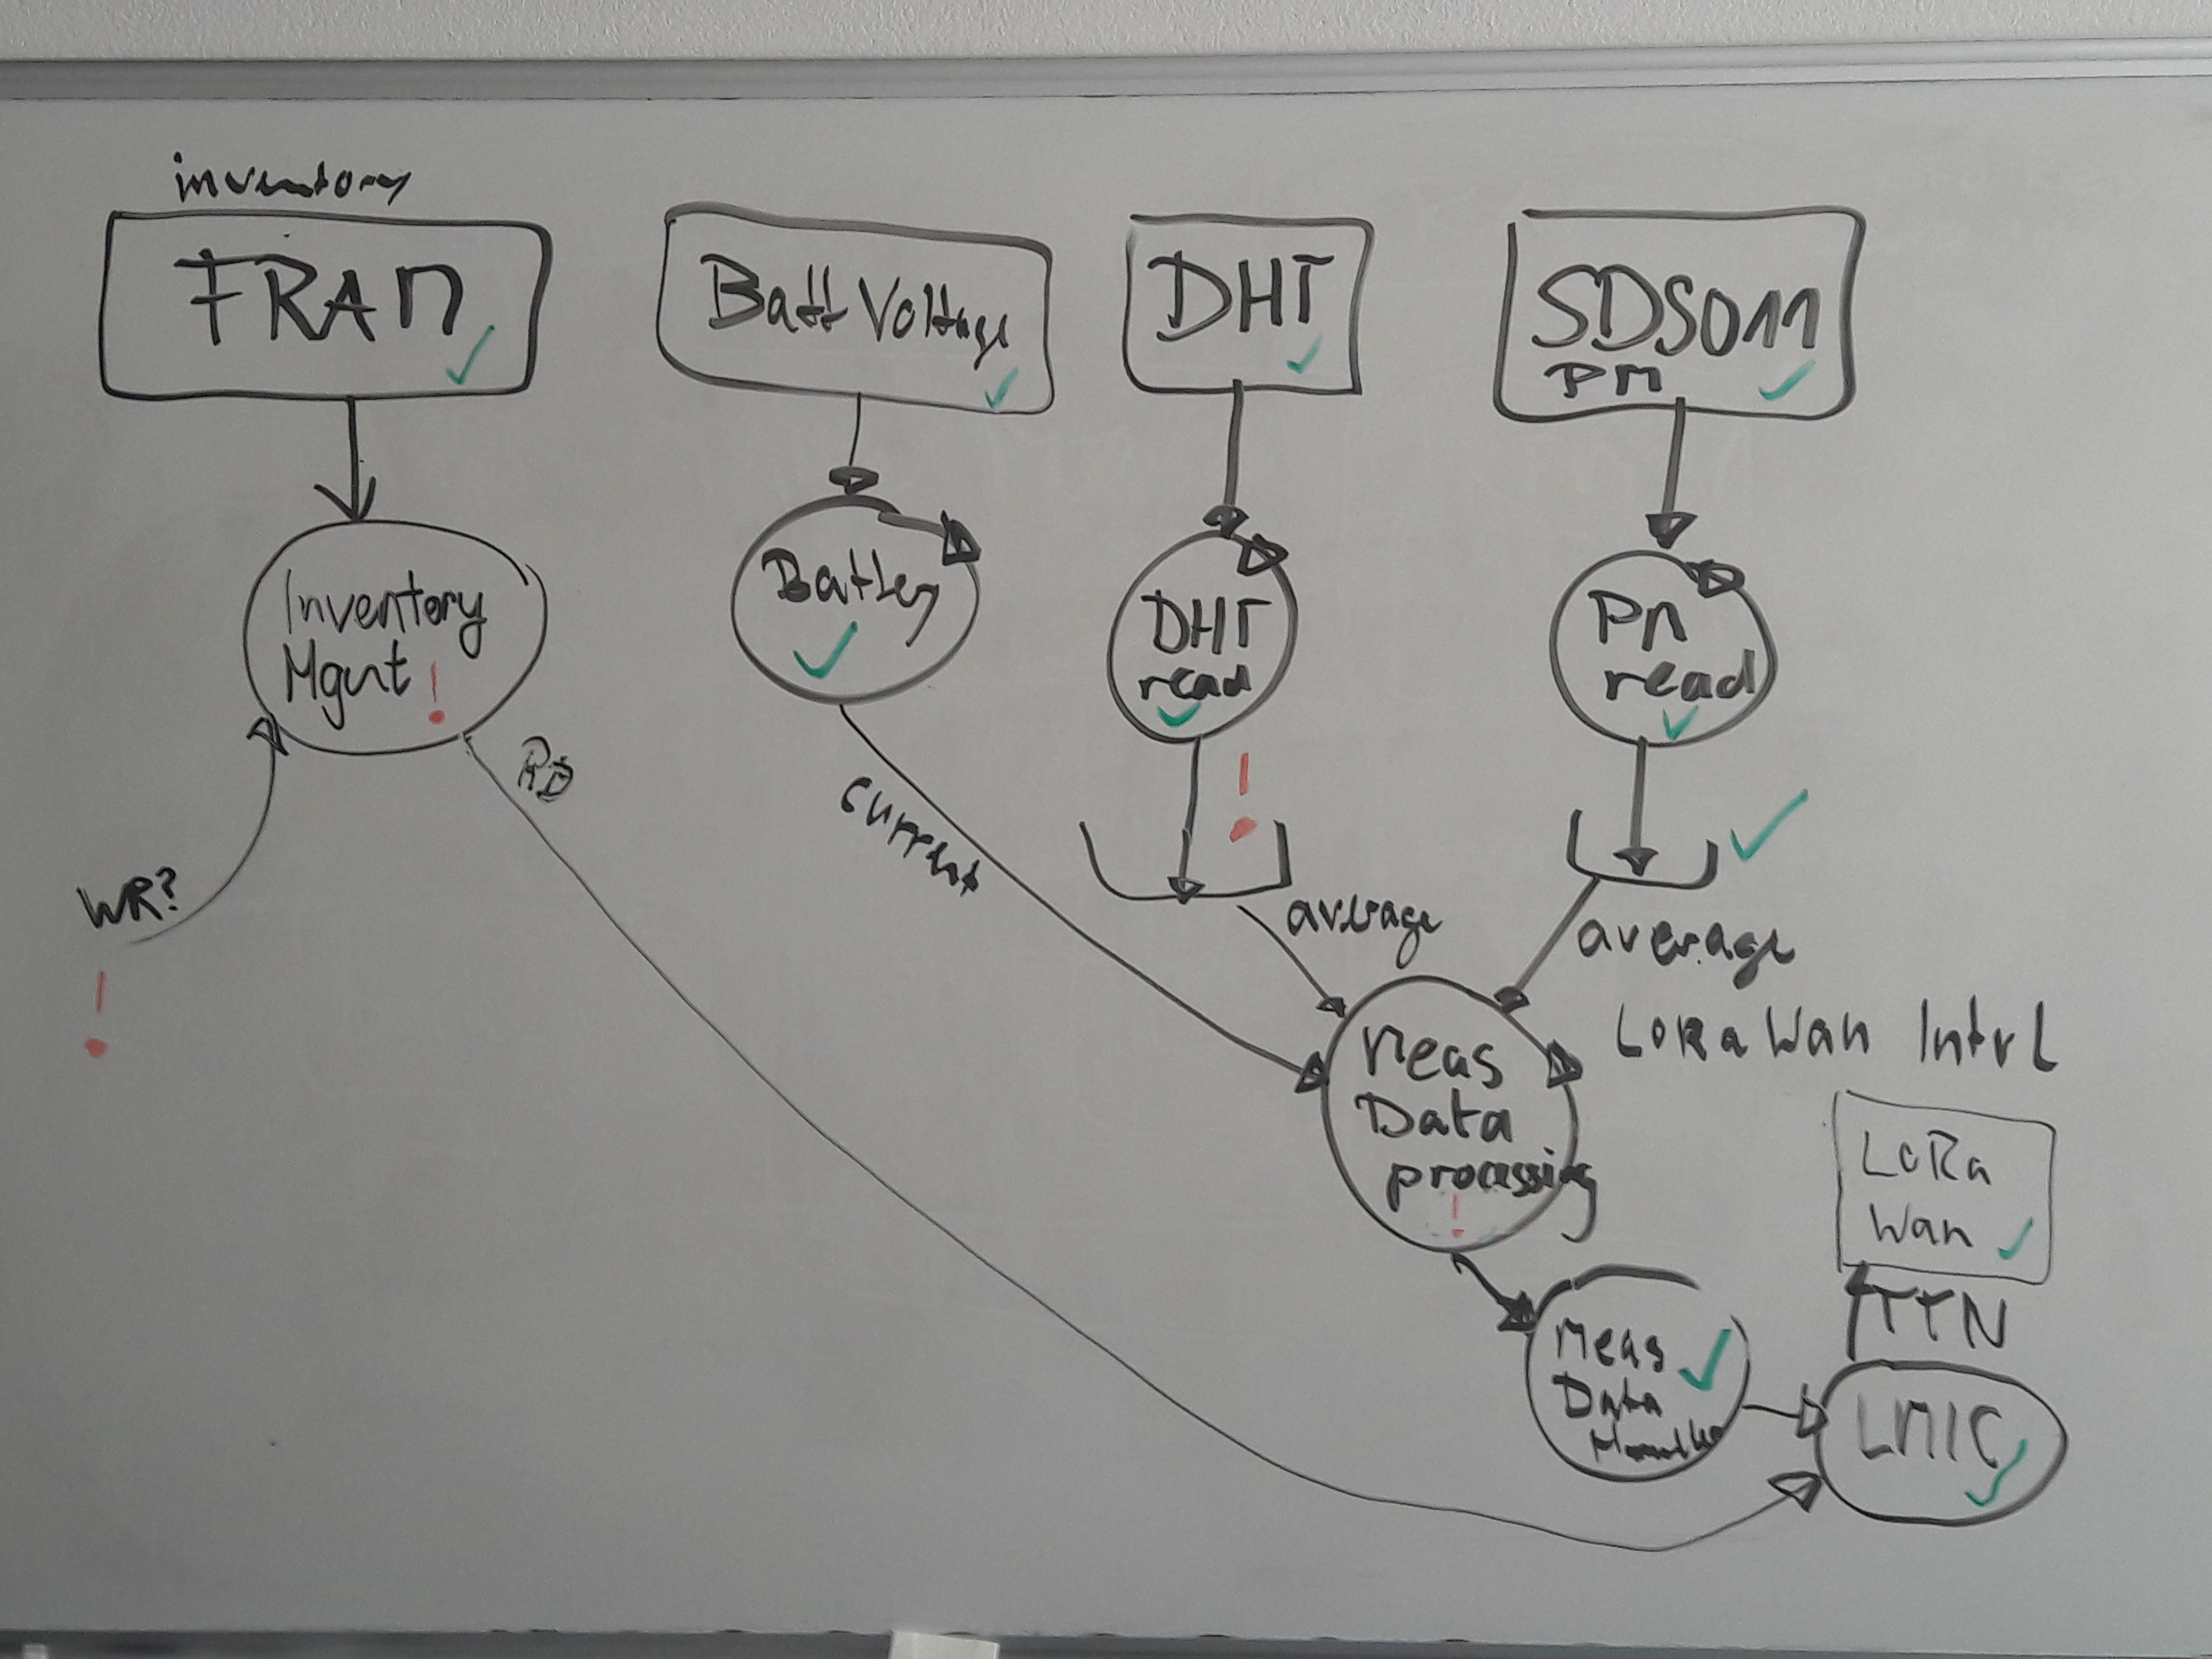 inventory
FRAM
Batt Voltage
DHT
SDS011
PM
Inventory
Mgnt !
Battery
DHT
read
PM
read
RD
current
!
WR?
!
average
average
LoRaWan Intvl
Meas
Data
processing
!
LoRa
Wan
TTN
Meas
Data
Handler
LMIC